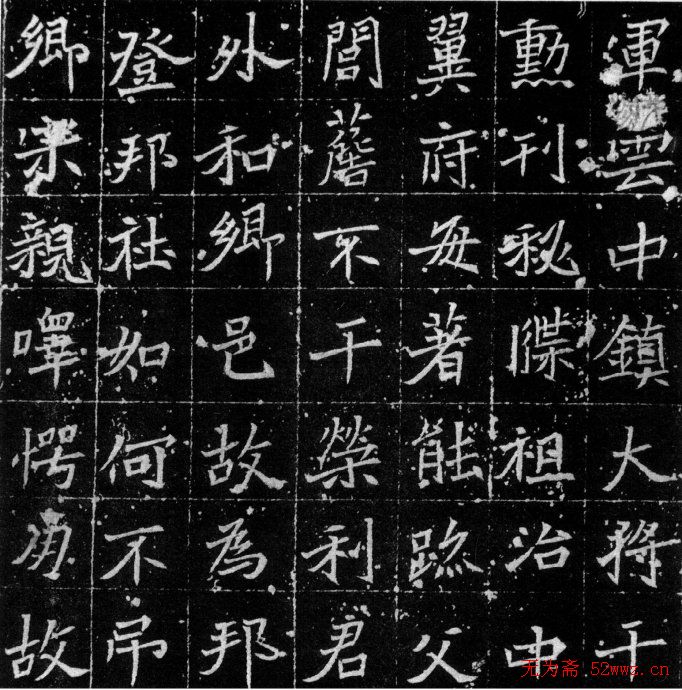 軍雲中鎮大將干
勳刊秘牒祖治中
翼府每著能跡父
誾不干榮利君
外和鄉邑故為邦
登邦社如何不弔
鄉宗親愕故
无为斋 52wwz.cn